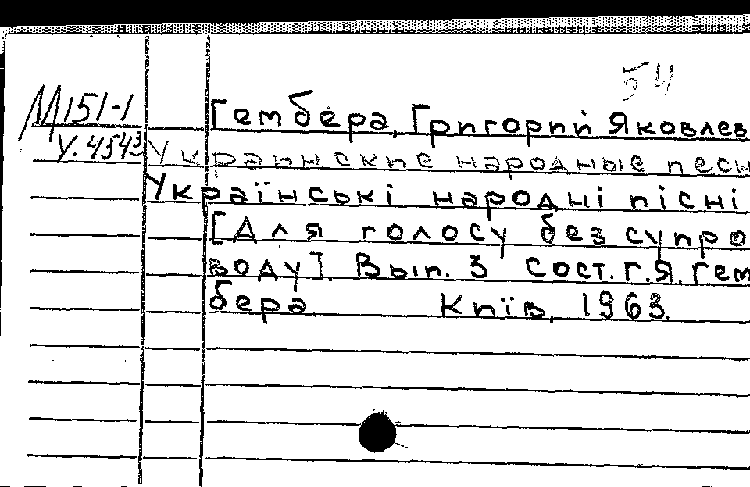 54
М151-1
У.4543
Гембера, Григорий Яковлев
Украинские народные песн
Українські народні пісні
[Для голосу без супро
воду]. Вып. 3 Сост. Г.Я. Гем
бера Київ, 1963.